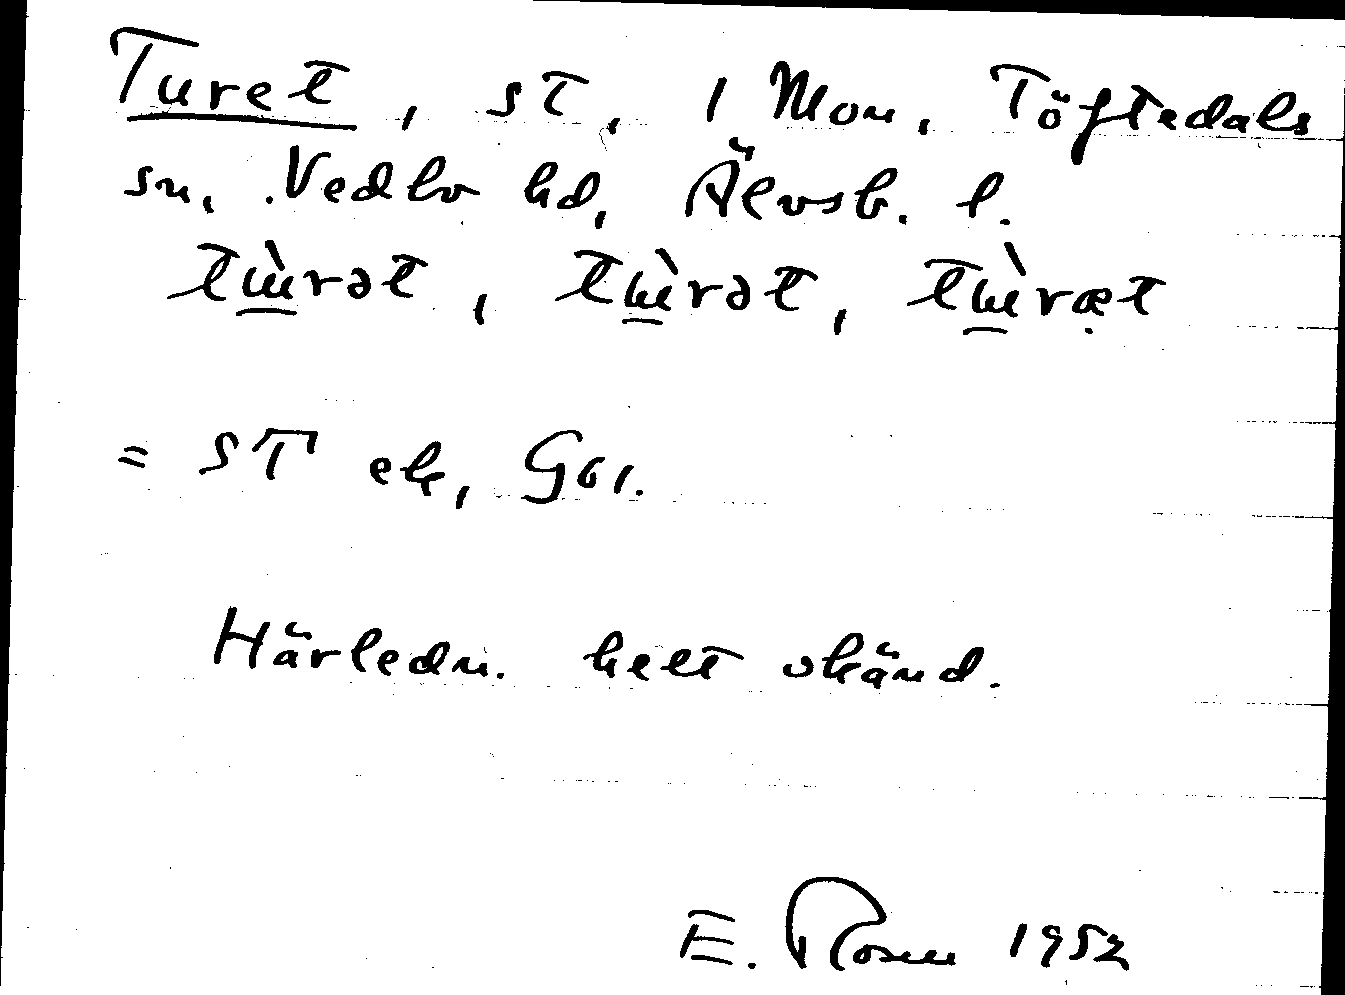 Turet, sT, 1 Mon, Töftedals
sn, Vedbo hd, Älvsb. l.
tɯ̀rət, tɯ̀rət, tɯ̀ræt
= ST ek, G61.
Härledn. helt okänd.
E. Rosen 1952